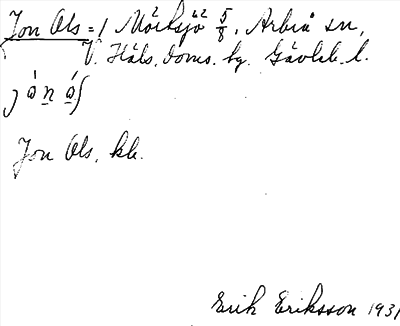 Jon Ols = / Mörksjö 5/8, Arbrå sn,
V. Häls. doms. hg. Gävleb. l.
Jon Ols, kk.
Erik Eriksson 1931